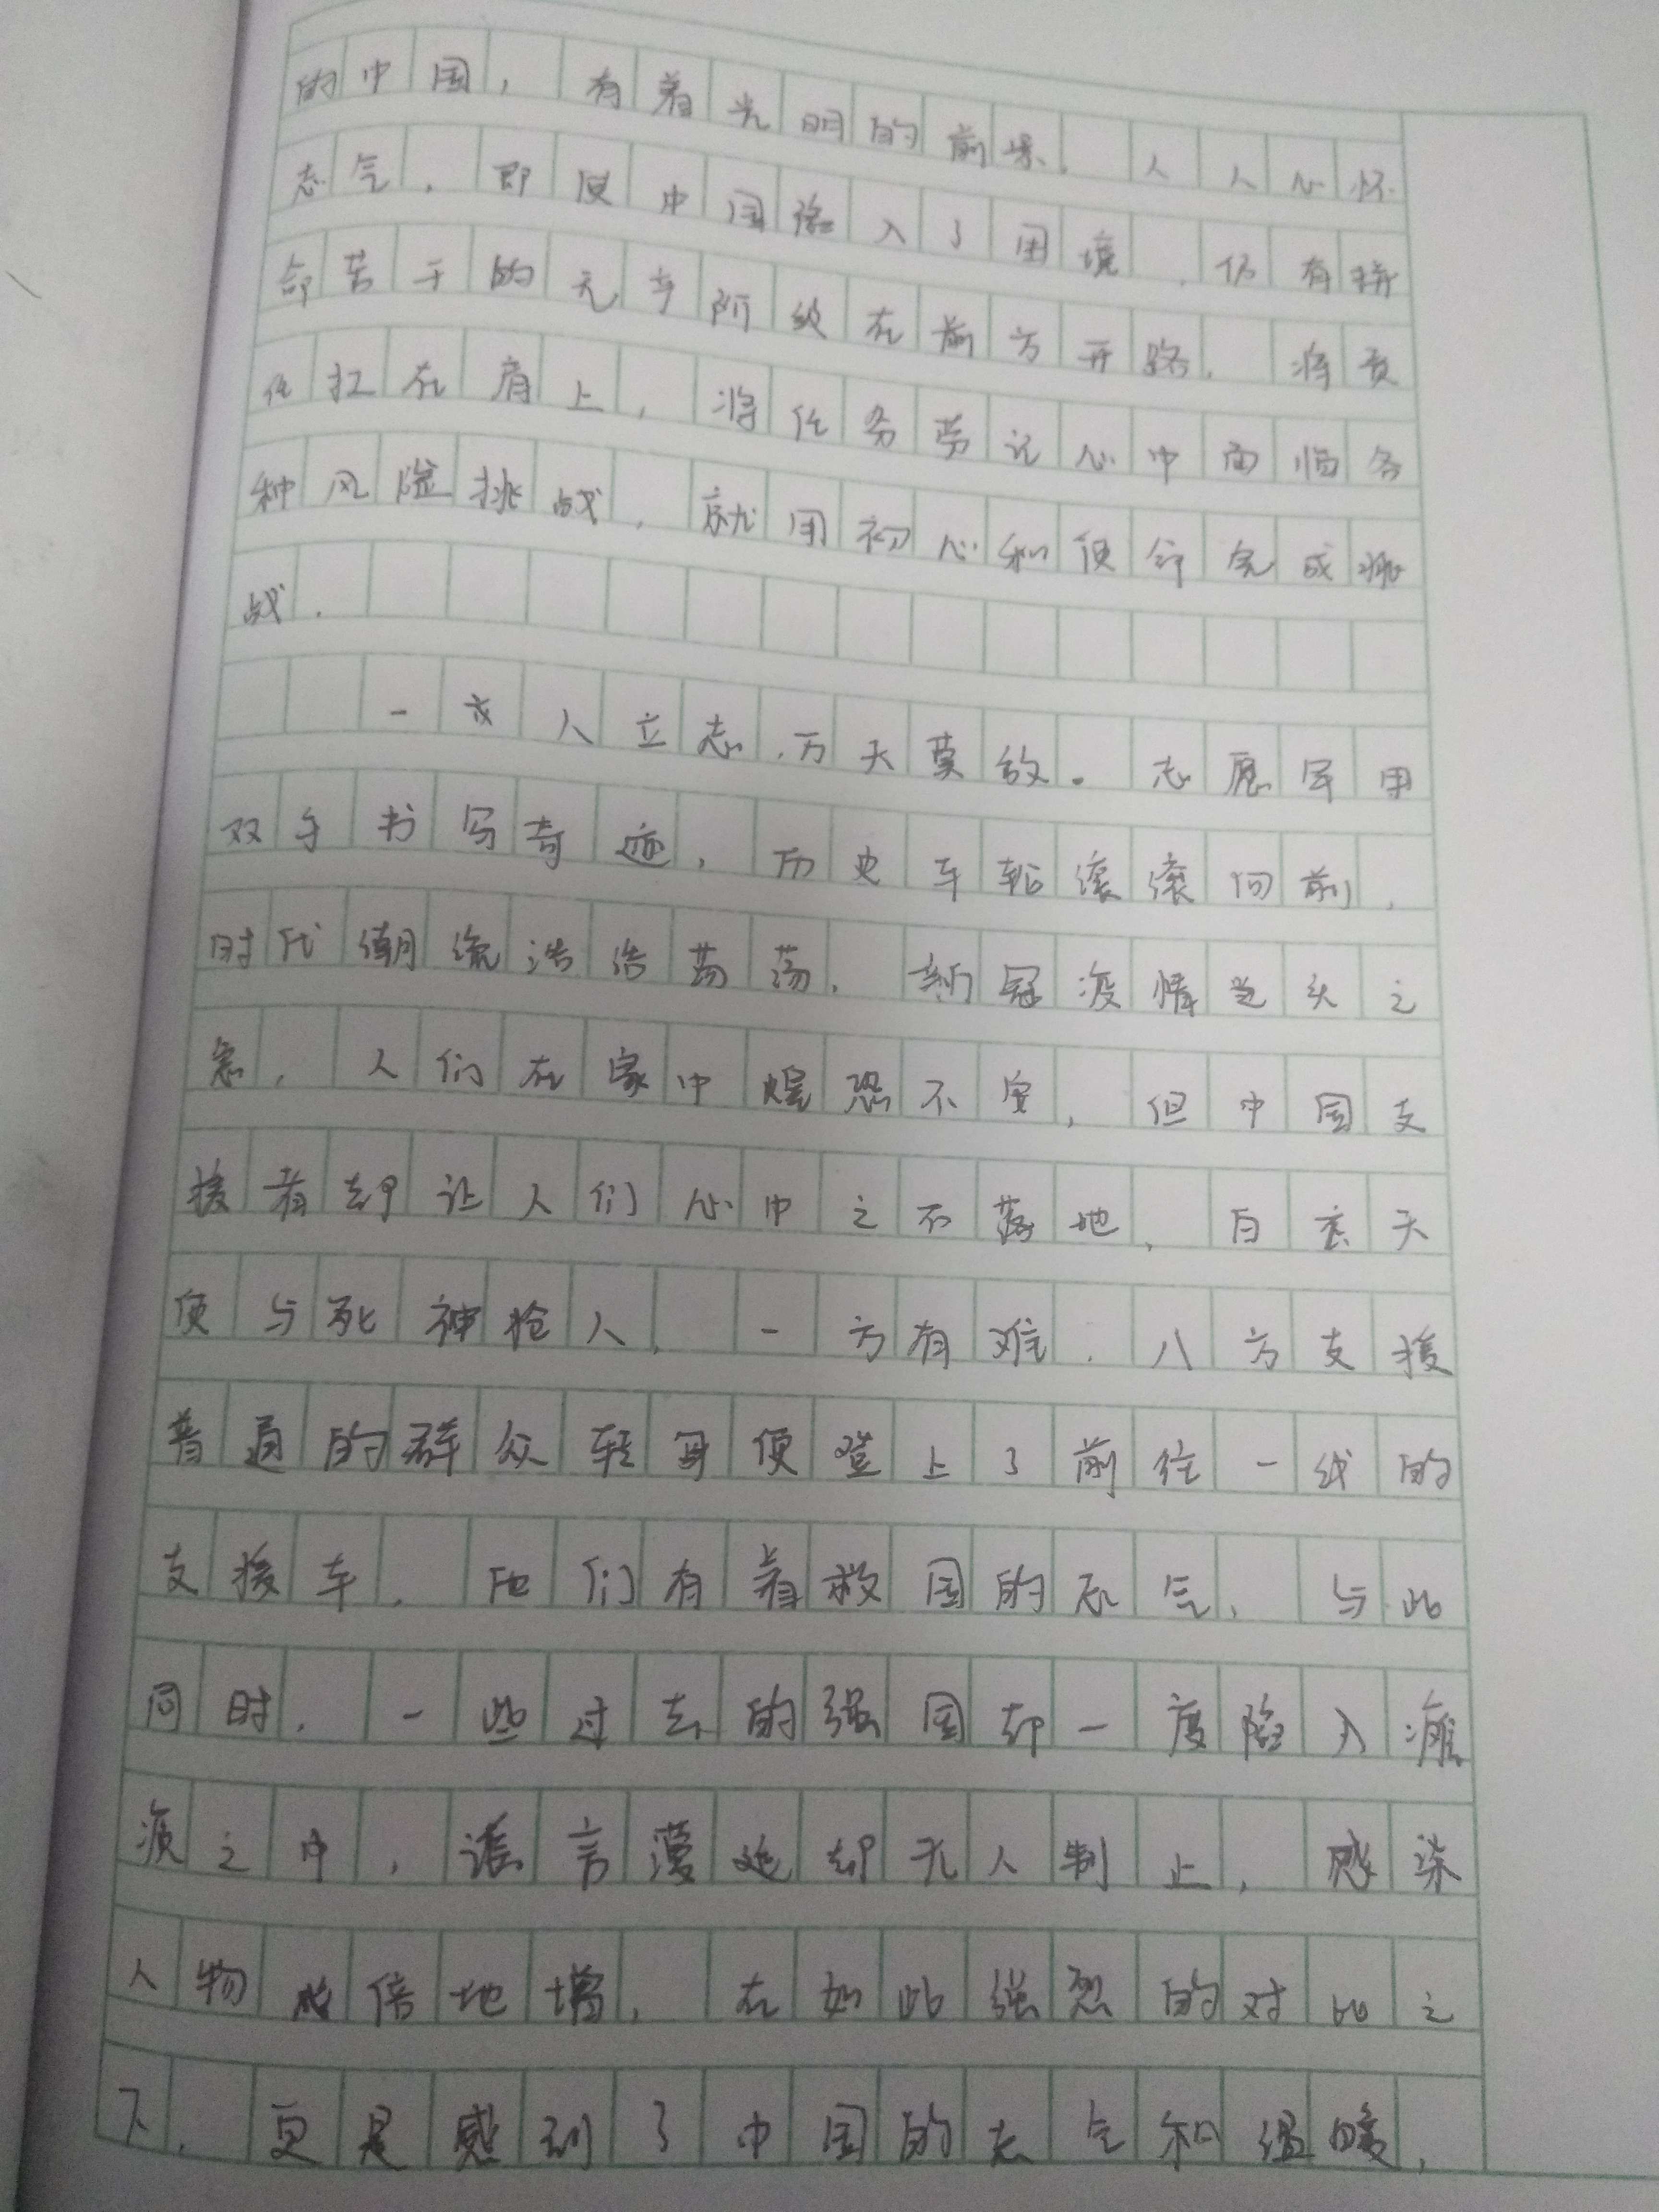 的中国，有着光明的前景，人人心怀
志气，即使中国陷入了困境，仍有拼
命苦干的无产阶级在前方开路，将责
任扛在肩上，将任务劳记心中面临各
种风险挑战，就用初心和使命完成挑
战．
一人立志，万夫莫敌。志愿军用
双手书写奇迹，历史车轮滚滚向前，
时代潮流浩浩荡荡．新冠疫情当头之
急，人们在家中煌恐不安，但中国支
援者却让人们心中之石落地，白衣天
使与死神抢人，一方有难．八方支援
普通的群众转身便登上了前往一线的
支援车．他们有着救国的志气，与此
同时，一些过去的强国却一度陷入瘫
痪之中，谣言蔓延却无人制止，感染
人物成倍地增，在如此强烈的对比之
下，更是感到了中国的志气和温暖，